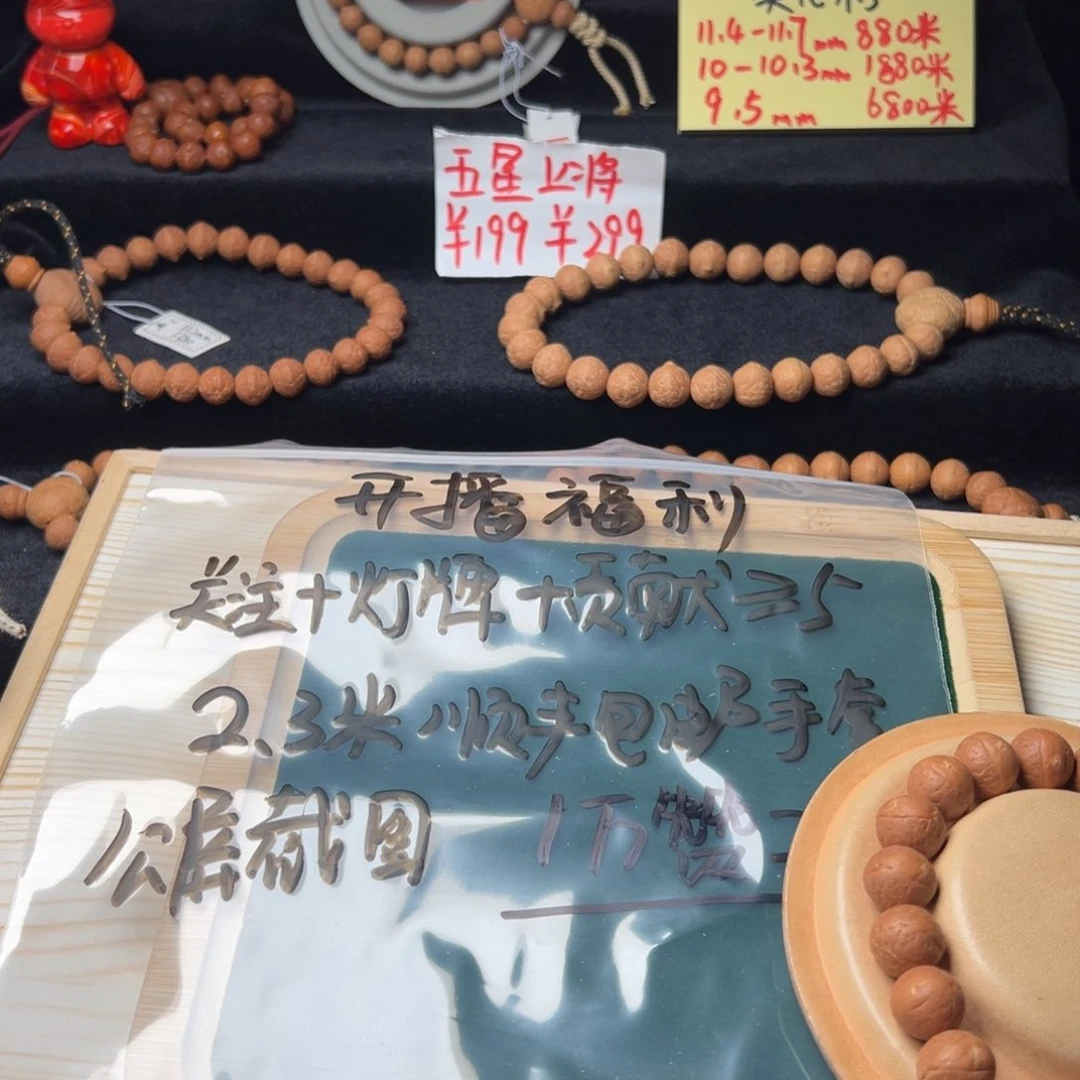 11.4-11.7mm 880米
10-10.3mm 1880米
9.5mm 6800米
五星上将
¥199 ¥299
开播福利
关注+灯牌+贡献≥5
2.3米 顺丰包邮手套
公屏截图 1万赞